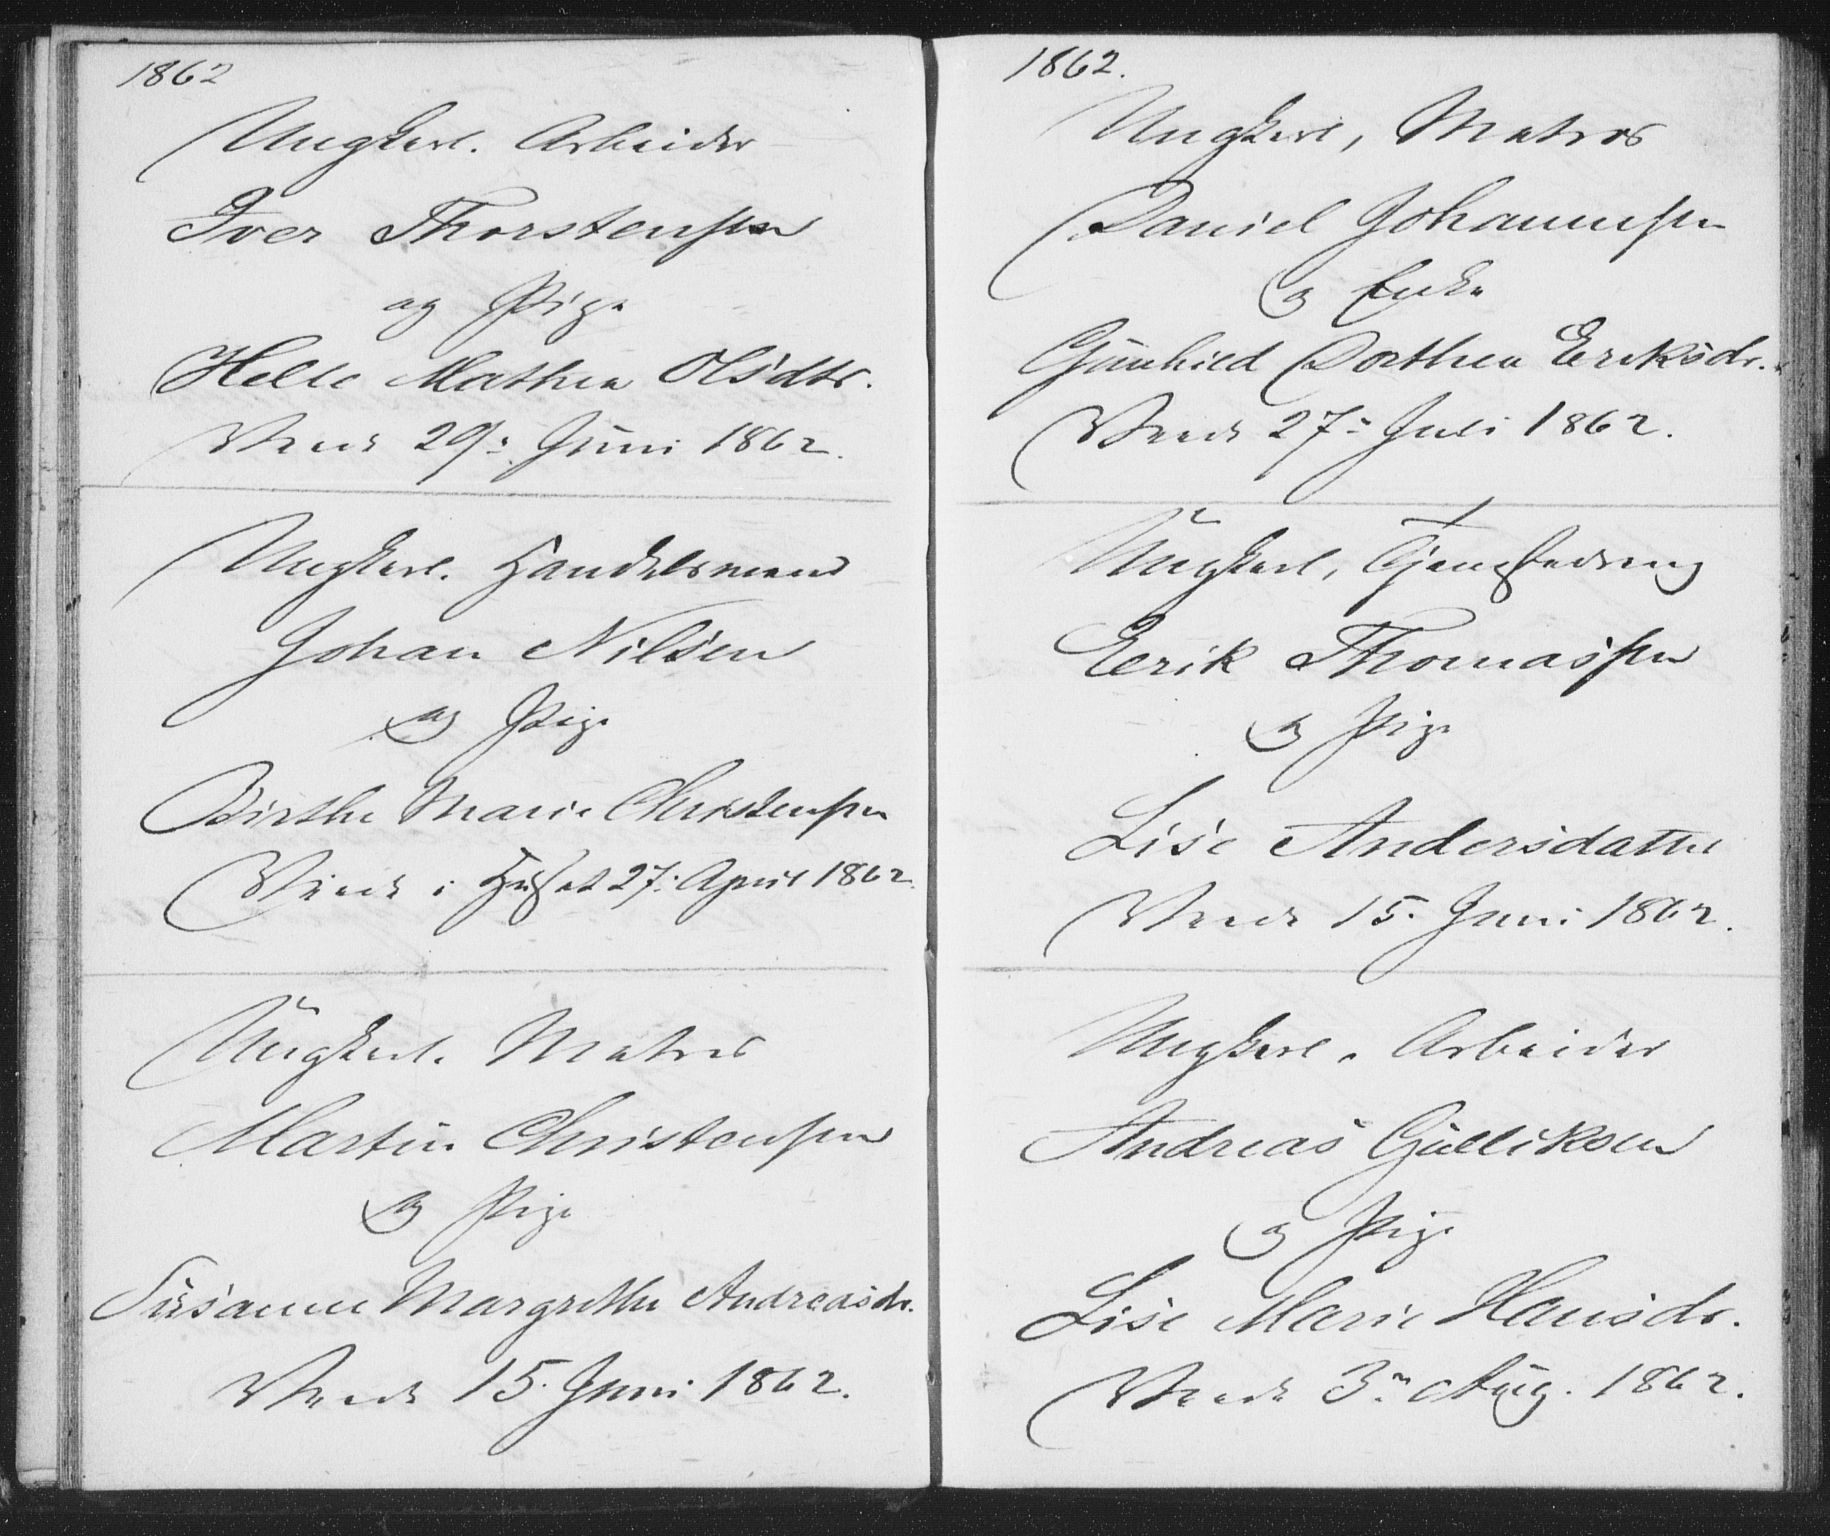 1862
Ungkarl. Arbeider
Iver Thorstensen
og Pige
Helle Mathea Olsdtr.
Viede 29: Juni 1862.
Ungkarl. Handelsmand
Johan Nilsen
og Pige
Birthe Marie Christensen
Viede i Huset 27: April 1862
Ungkarl. Matros
Martin Christensen
og Pige
Susanne Margrethe Andreasdr.
Viede 15. Juni 1862.
1862.
Ungkarl, Matros
Daniel Johannesen
og Enke
Gunhild Dorthea Eriksdr.
Viede 27: Juli 1862.
Ungkarl, Tjenestedreng
Eerik Thomassen
og Pige
Lise Andersdatter
Viede 15. Juni 1862.
Ungkarl. Arbeider
Andreas Gulliksen
og Pige
Lise Marie Hansdr.
Viede 3: Aug. 1862.